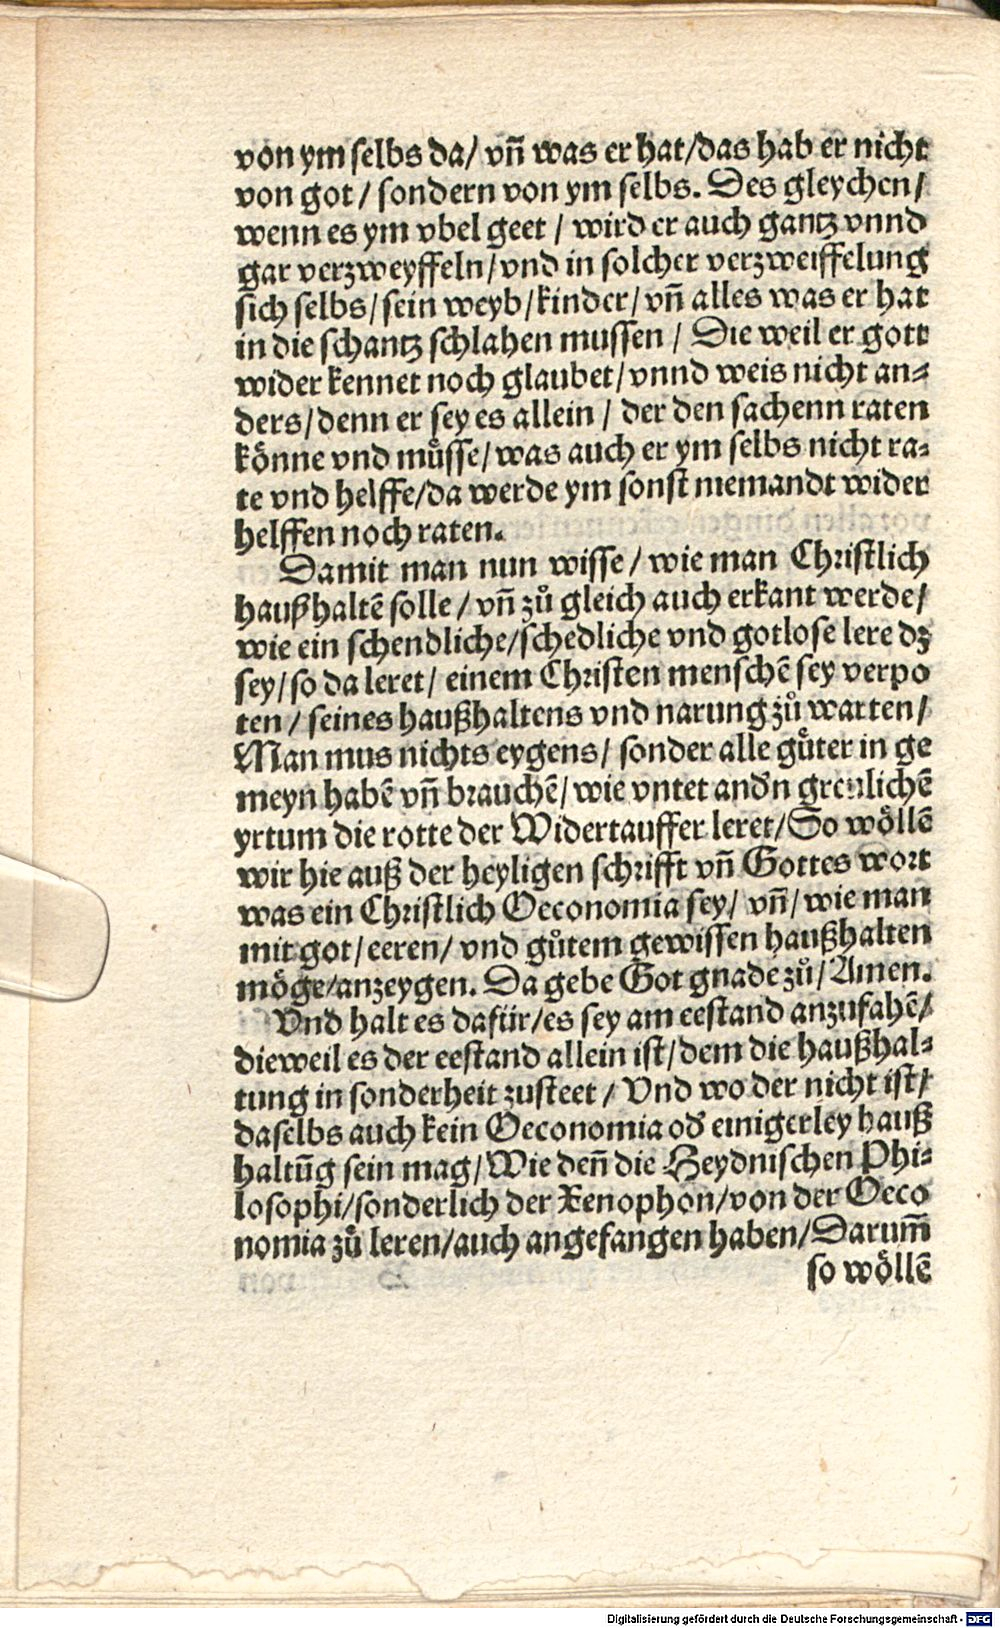 von ym selbs da/ vn̄ was er hat/das hab er nicht
von got/ sondern von ym selbs. Des gleychen/
wenn es ym vbel geet/ wird er auch gantz vnnd
gar verzweyffeln/vnd in solcher verzweiffelung
sich selbs/sein weyb/kinder/vn̄ alles was er hat
in die schantz schlahen mussen/ Die weil er gott
wider kennet noch glaubet/vnnd weis nicht an⸗
ders/denn er sey es allein/ der den sachenn raten
könne vnd müsse/was auch er ym selbs nicht ra⸗
te vnd helffe/da werde ym sonst niemandt wider
helffen noch raten.
Damit man nun wisse/ wie man Christlich
haußhaltē solle/ vn̄ zů gleich auch erkant werde/
wie ein schendliche/schedliche vnd gotlose lere dz
sey/so da leret/ einem Christen menschē sey verpo
ten/ seines haußhaltens vnd narung zů warten/
Man mus nichts eygens/ sonder alle güter in ge
meyn habē vn̄ brauchē/wie vntet andn greulichē
yrtum die rotte der Widertauffer leret/So wöllē
wir hie auß der heyligen schrifft vn̄ Gottes wort
was ein Christlich Oeconomia sey/ vn̄/wie man
mit got/eeren/ vnd gůtem gewissen haußhalten
möge/anzeygen. Da gebe Got gnade zů/Amen.
Vnd halt es dafür/es sey am eestand anzufahē/
dieweil es der eestand allein ist/dem die haußhal⸗
tung in sonderheit zusteet/ Vnd wo der nicht ist/
daselbs auch kein Oeconomia od einigerley hauß
haltūg sein mag/Wie den̄ die Heydnischen Phi⸗
losophi/sonderlich der Xenophon/von der Oeco
nomia zů leren/auch angefangen haben/Darum̄
so wöllē
Digitalisierung gefördert durch die Deutsche Forschungsgemeinschaft - DFG